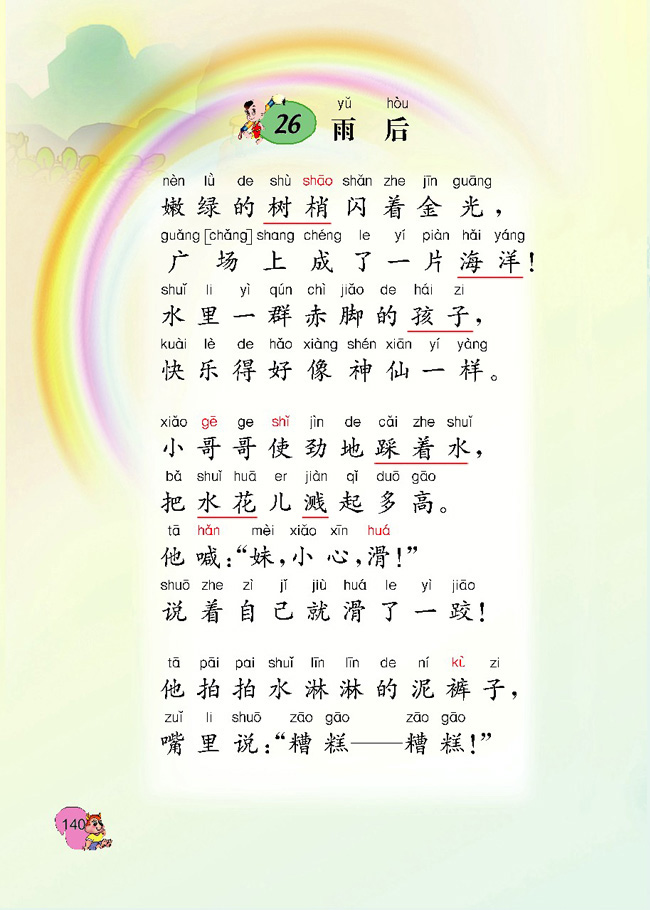 yǔ hòu
26 雨后
nèn lǜ de shù shāo shǎn zhe jīn guāng
嫩绿的树梢闪着金光，
guǎng [chǎng] shang chéng le yí piàn hǎi yáng
广场上成了一片海洋！
shuǐ li yì qún chì jiǎo de hái zi
水里一群赤脚的孩子，
kuài lè de hǎo xiàng shén xiān yí yàng
快乐得好像神仙一样。
xiǎo gē ge shǐ jìn de cǎi zhe shuǐ
小哥哥使劲地踩着水，
bǎ shuǐ huā er jiàn qǐ duō gāo
把水花儿溅起多高。
tā hǎn mèi xiǎo xīn huá
他喊：“妹，小心，滑！”
shuō zhe zì jǐ jiù huá le yì jiāo
说着自己就滑了一跤！
tā pāi pai shuǐ līn līn de ní kù zi
他拍拍水淋淋的泥裤子，
zuǐ li shuō zāo gāo zāo gāo
嘴里说：“糟糕——糟糕！”
140